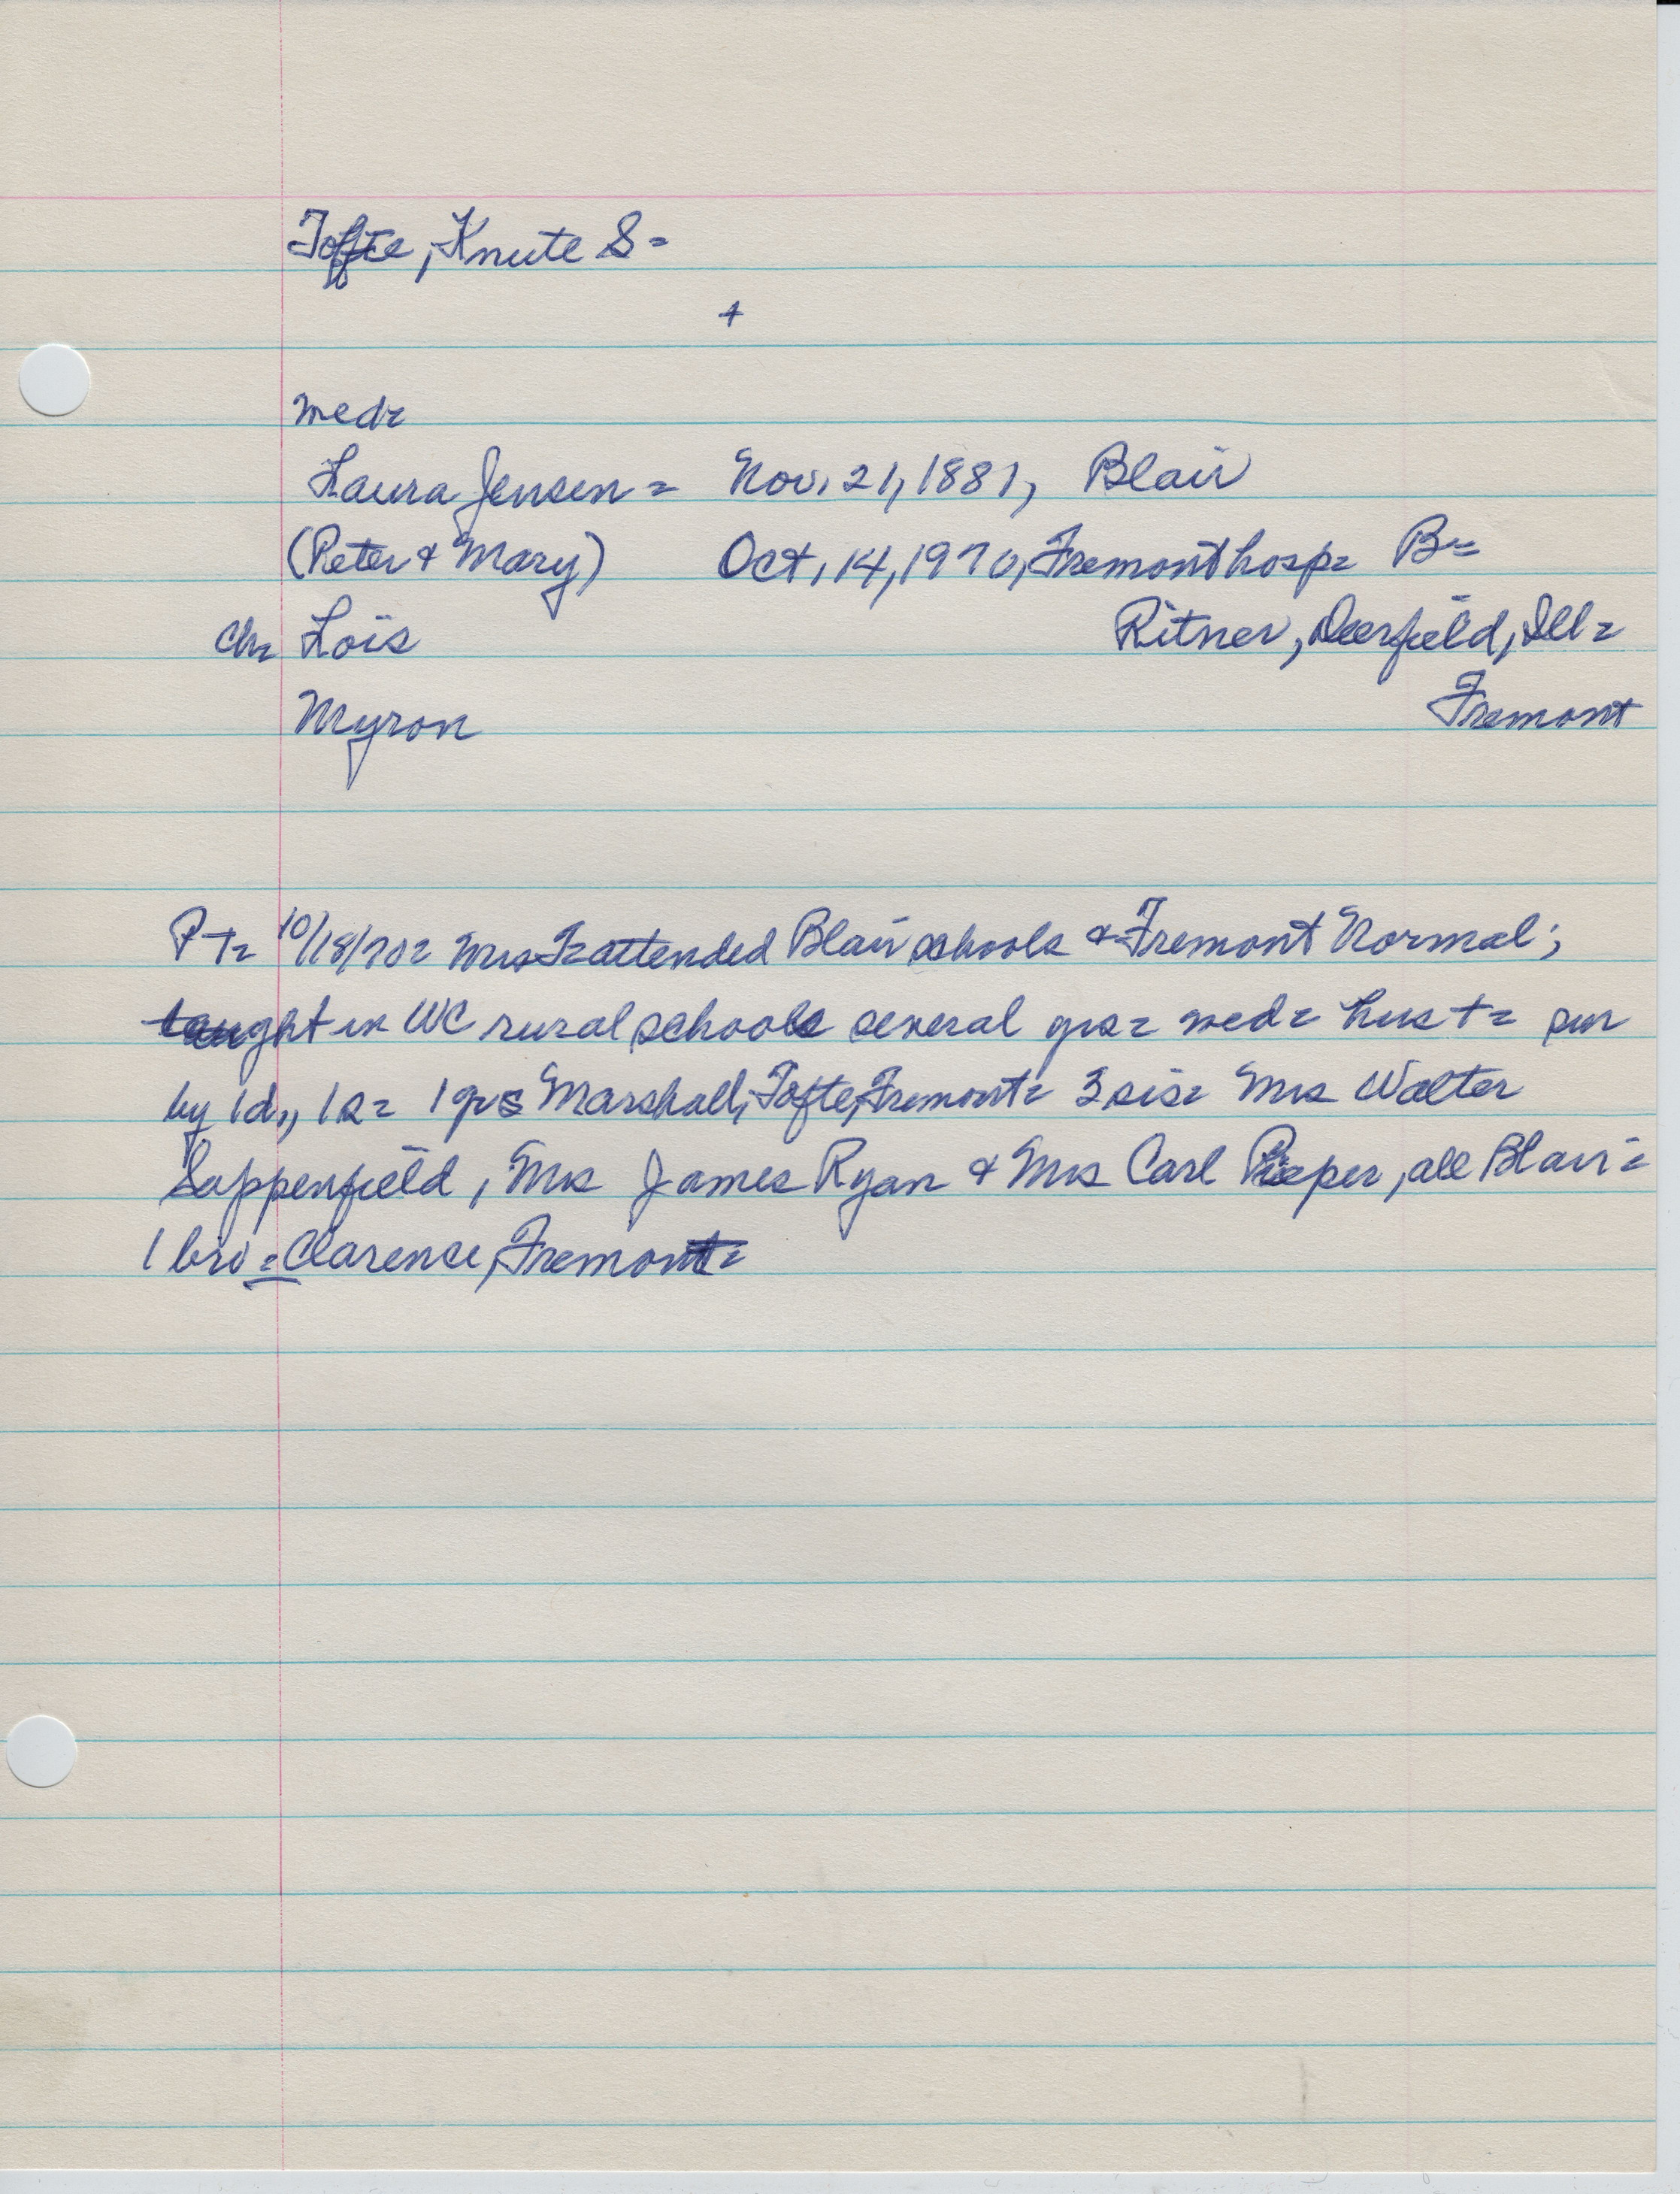 Tofte, Knute S=
+
med=
Laura Jensen = Nov. 21, 1881, Blair
(Peter & Mary) Oct. 14, 1970, Fremont hosp= B=
Ch= Lois Ritner, Deerfield, Ill=
Myron Fremont
PT= 10/18/70= Mrs T= attended Blair schools & Fremont Normal;
taught in WC rural schools several yrs= med= hus +=  sur
by 1d., 1s= 1 grs Marshall, Tofte, Fremont= 3 sis= Mrs Walter
Sappenfield, Mrs James Ryan & Mrs Carl Pieper, all Blair=
1 bro = Clarence, Fremont=